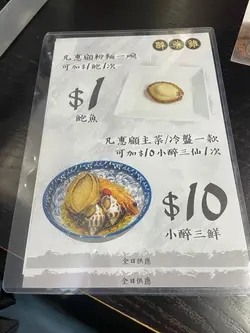 醉燒鵝
凡惠顧粉麵一碗
可加$1鮑1次
$1
鮑魚
凡惠顧主菜/冷盤一款
可加$10小醉三仙1次
$10
小醉三鮮
全日供應
全日供應